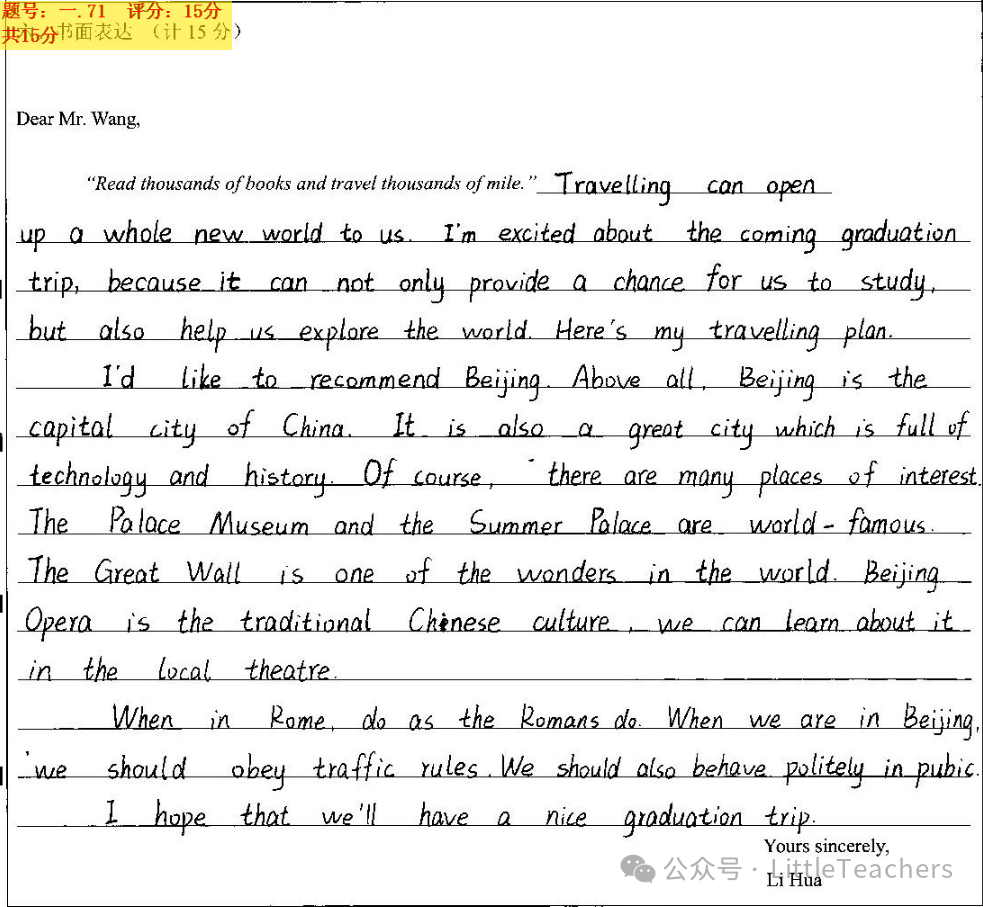 题号：一.71 评分：15分
共15分
书面表达 （计 15 分）
Dear Mr. Wang,
“Read thousands of books and travel thousands of mile.” Travelling can open
up a whole new world to us. I'm excited about the coming graduation
trip, because it can not only provide a chance for us to study,
but also help us explore the world. Here's my travelling plan.
I'd like to recommend Beijing. Above all, Beijing is the
capital city of China. It is also a great city which is full of
technology and history. Of course, there are many places of interest.
The Palace Museum and the Summer Palace are world-famous.
The Great Wall is one of the wonders in the world. Beijing
Opera is the traditional Chinese culture, we can learn about it
in the local theatre.
When in Rome, do as the Romans do. When we are in Beijing,
we should obey traffic rules. We should also behave politely in pubic.
I hope that we'll have a nice graduation trip.
Yours sincerely,
Li Hua
公众号 · LittleTeachers